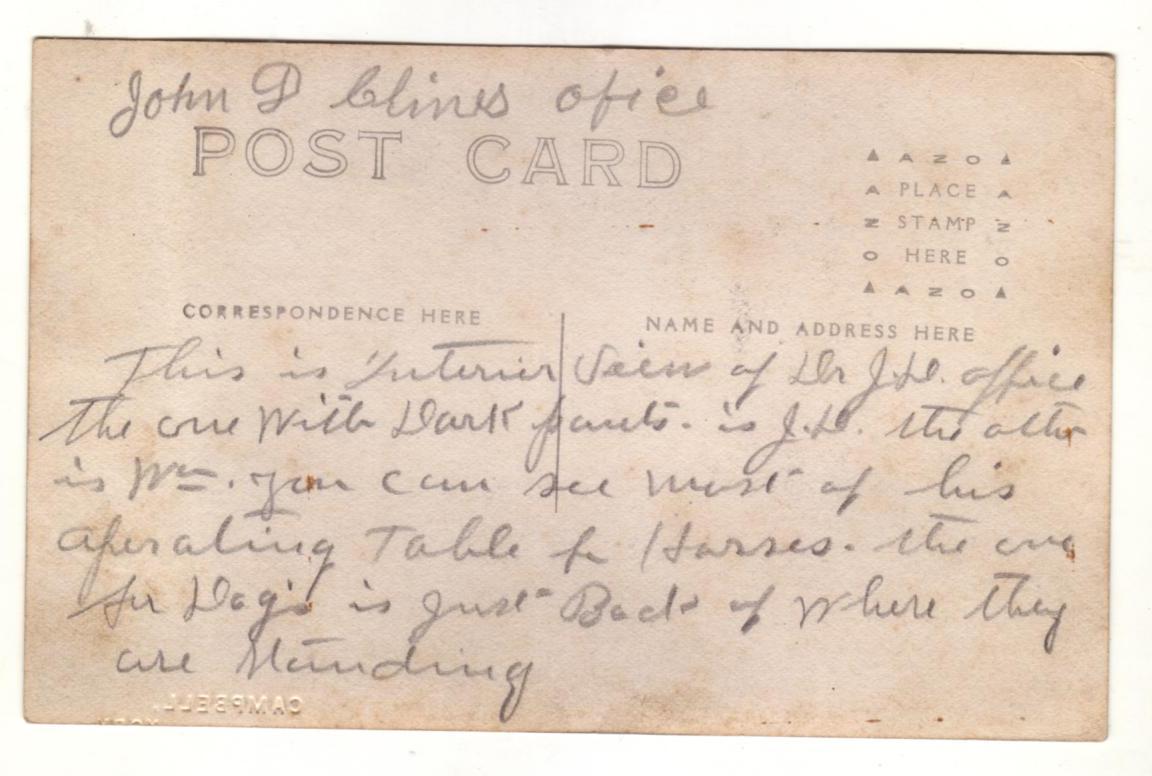 John D Clines ofice
POST CARD
▲ A Z O ▲
A PLACE A
Z STAMP Z
O HERE O
▲ A Z O ▲
CORRESPONDENCE HERE
NAME AND ADDRESS HERE
This is Interier View of Dr J.D. office
the one With Dark pants. is J.D. the other
is Wm. you can see most of his
operating Table for Horses. the one
for Dogs is just Back of Where they
are standing
CAMPBELL